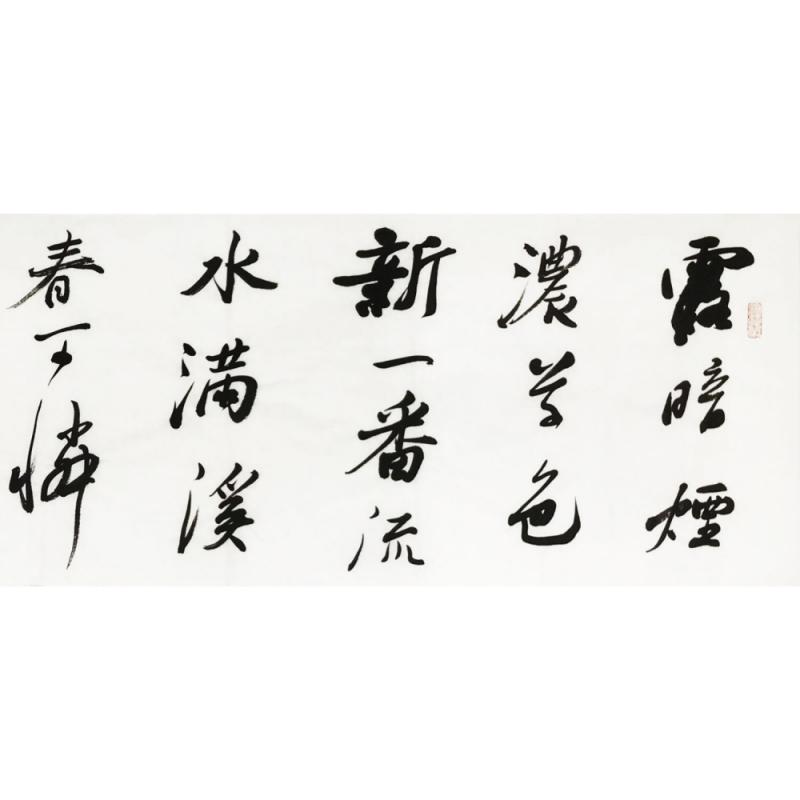 露暗煙
濃草色
新一番流
水滿溪
春可憐